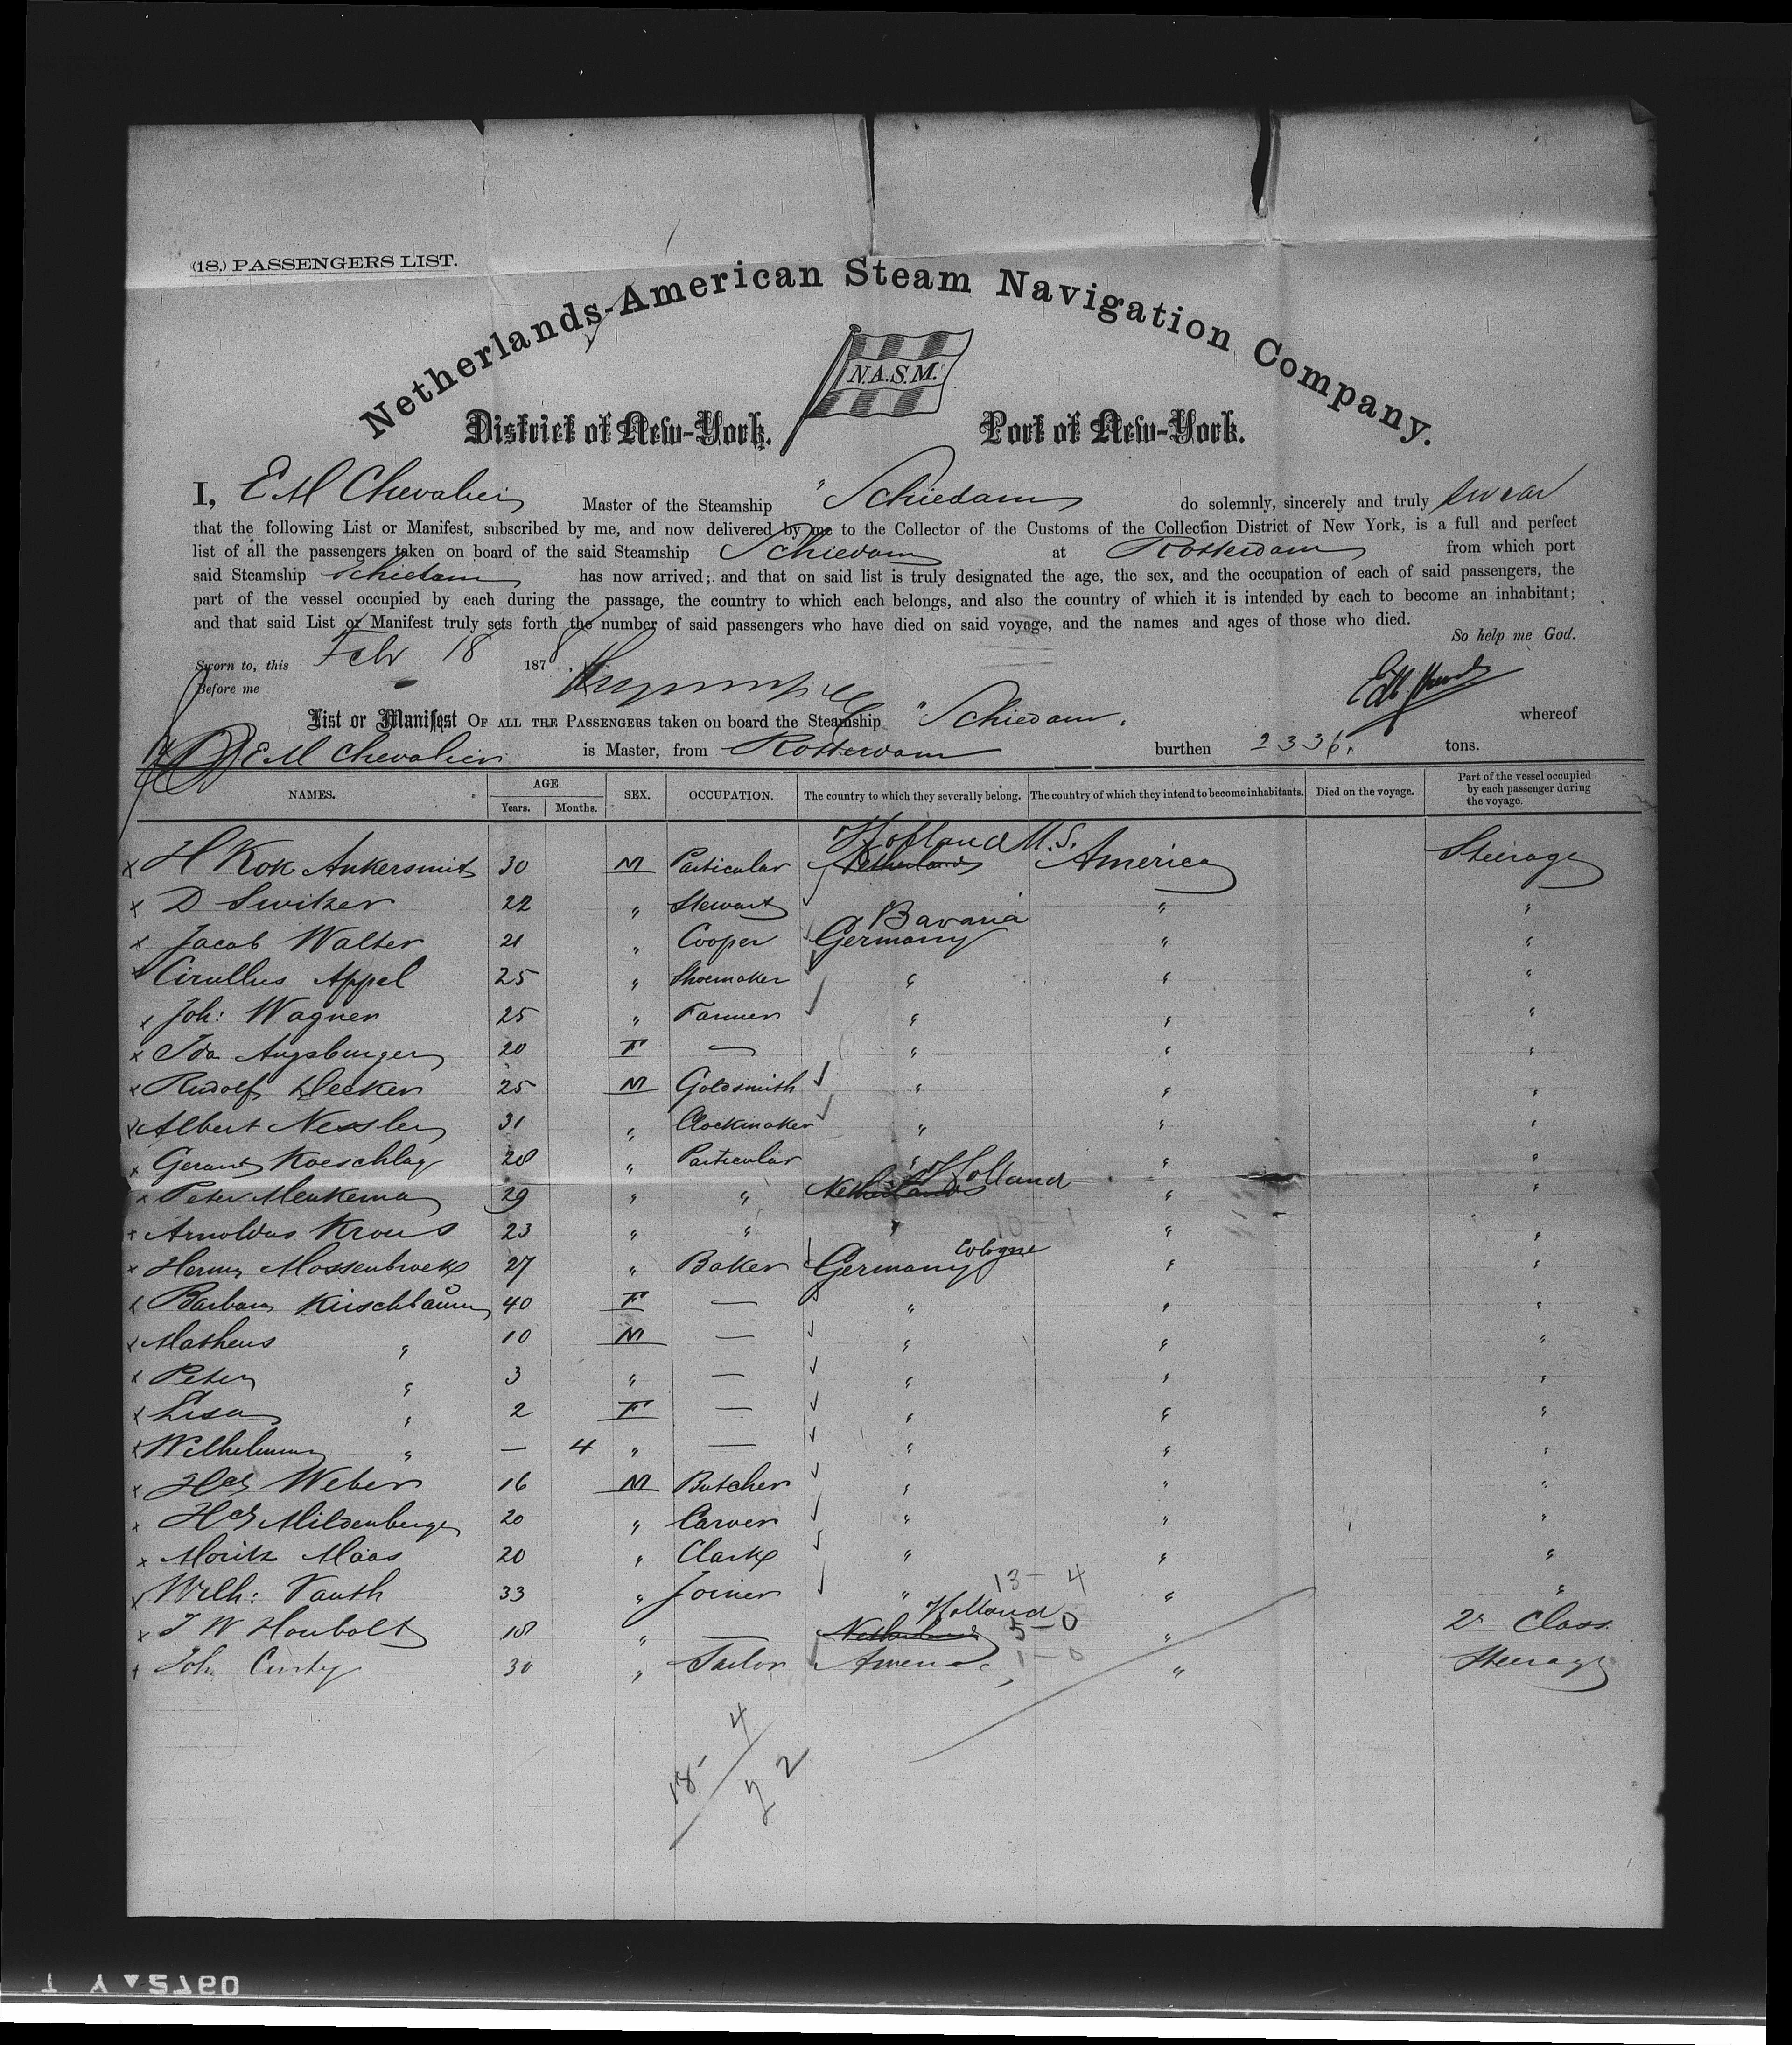 (18,) PASSENGERS LIST.
Netherlands-American Steam Navigation Company.
N.A.S.M.
District of New-York. Port of New-York.
I, E M Chevalier Master of the Steamship " Schiedam do solemnly, sincerely and truly swear
that the following List or Manifest, subscribed by me, and now delivered by me to the Collector of the Customs of the Collection District of New York, is a full and perfect
list of all the passengers taken on board of the said Steamship Schiedam at Rotterdam from which port
said Steamship Schiedam has now arrived; and that on said list is truly designated the age, the sex, and the occupation of each of said passengers, the
part of the vessel occupied by each during the passage, the country to which each belongs, and also the country of which it is intended by each to become an inhabitant;
and that said List or Manifest truly sets forth the number of said passengers who have died on said voyage, and the names and ages of those who died.
So help me God.
Sworn to, this Febr 18 1878.
Before me
List or Manifest OF ALL THE PASSENGERS taken on board the Steamship " Schiedam. whereof
E M Chevalier is Master, from Rotterdam burthen 2336. tons.
NAMES. AGE. Years. Months. SEX. OCCUPATION. The country to which they severally belong. The country of which they intend to become inhabitants. Died on the voyage. Part of the vessel occupied by each passenger during the voyage.
Holland U.S.
x H Kok Ankersmit 30 M Particular Netherlands America Steerage
x D Switzer 22 " Stewart " "
Bavaria
x Jacob Walter 21 " Cooper Germany " "
x Cirullus Appel 25 " Shoemaker " " "
x Joh: Wagner 25 " Farmer " " "
x Ida Augsburger 20 F — " " "
x Rudolf Decker 25 M Goldsmith " " "
x Albert Nessler 31 " Clockmaker " " "
x Gerard Koeschlag 28 " Particular " " "
Holland
x Peter Menkema 29 " " Netherlands " "
x Arnoldus Krous 23 " " " " "
Cologne
x Herm Mossenbroek 27 " Baker Germany " "
x Barbara Kirschbaum 40 F — " " "
x Matheus " 10 M — " " "
x Peter " 3 " — " " "
x Lisa " 2 F — " " "
x Wilhelmina " — 4 " — " " "
x Weber 16 M Butcher " " "
x Mildenberger 20 " Carver " " "
x Moritz Maas 20 " Clark " " "
13 - 4
x Wilh: Vauth 33 " Joiner " " "
Holland 5-0
x J W Houbolt 18 " — Netherlands " 2r Class
x Joh. 30 " Tailor America 1-0 " Steerage
18 - 4
22